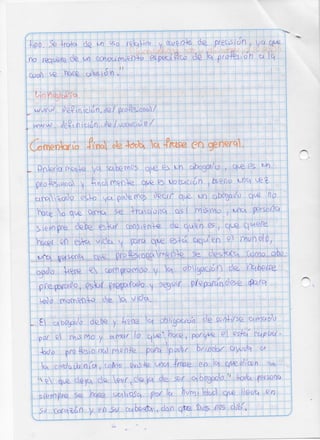 tipo. Se trata de un uso relativo y ausente de precisión, ya que
no requiere de un conocimiento específico de la profesión a la
cual se hace alusión."
Linkografía
www. Definición.de/profesional/
www. definicion.de/vocación/
Comentario final de toda la frase en general.
- Anteriormente ya sabemos que es un abogado, que es un
profesional y finalmente que es vocación, bueno una vez
analizado esto ya podemos decir que un abogado que no
hace lo que ama se traiciona así mismo, una persona
siempre debe estar consiente de quien es, que quiere
hacer en esta vida y para que está aquí en el mundo,
una persona que profesionalmente se destaca como abo-
gado tiene el compromiso y la obligación de haberse
preparado, estar preparado y seguir preparándose para
todo momento de la vida.
- El abogado debe y tiene la obligación de sentirse amado
por él mismo y amar lo que hace, porque él está capaci-
tado profesionalmente para poder brindar ayuda a
la ciudadanía, como existe una frase en la que dicen
"El que deja de leer, deja de ser abogado" toda persona
siempre se hace valiosa, por la humildad que lleva en
su corazón y en su cabeza, don que Dios nos dió.